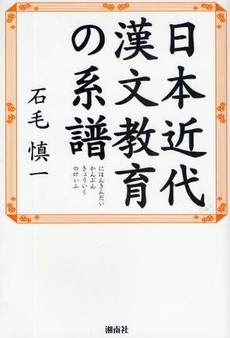 日本近代
漢文教育
の系譜
にほんきんだい
かんぶん
きょういく
のけいふ
石毛慎一
湘南社